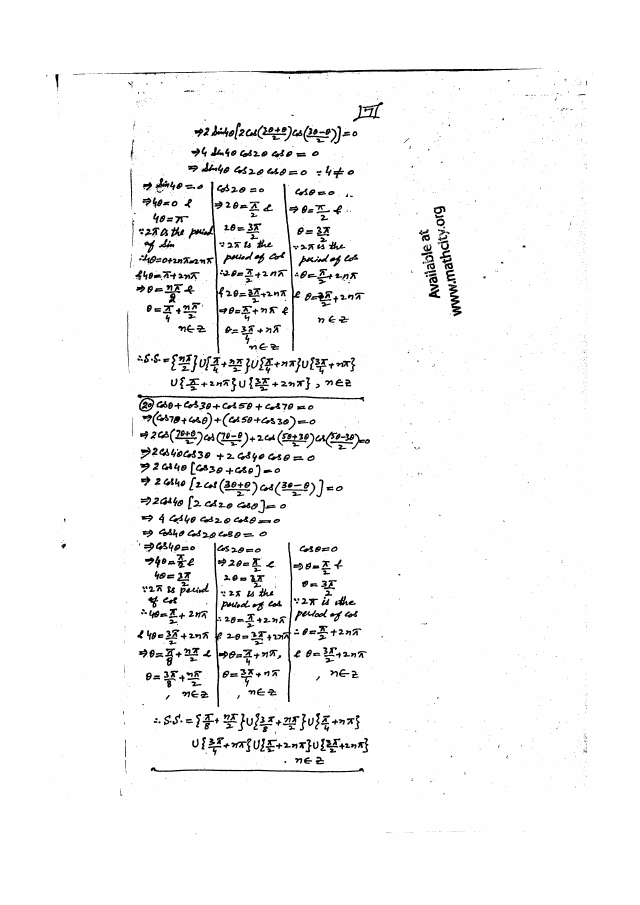 17
⇒2 Sin4θ[2Cos(3θ+θ/2)Cos(3θ-θ/2)]=0
⇒4 Sin4θ Cos2θ Cosθ = 0
⇒ Sin4θ Cos2θ Cosθ = 0 ∵ 4≠0
⇒ Sin4θ = 0
⇒4θ=0 &
4θ=π
∵2π is the period
of Sin
∴4θ=0+2nπ=2nπ
& 4θ=π+2nπ
⇒θ=nπ/2
θ=π/4+nπ/2
n∈Z
Cos2θ=0
⇒2θ=π/2 &
2θ=3π/2
∵2π is the
period of Cos
∴2θ=π/2+2nπ
& 2θ=3π/2+2nπ
⇒θ=π/4+nπ &
θ=3π/4+nπ
n∈Z
Cosθ=0
⇒θ=π/2 &
θ=3π/2
∵2π is the
period of Cos
∴θ=π/2+2nπ
& θ=3π/2+2nπ
n∈Z
∴S.S.={nπ/2}U{π/4+nπ/2}U{π/4+nπ}U{3π/4+nπ}
U{π/2+2nπ}U{3π/2+2nπ}, n∈Z
Available at
www.mathcity.org
(20) Cosθ+Cos3θ+Cos5θ+Cos7θ=0
⇒(Cos7θ+Cosθ)+(Cos5θ+Cos3θ)=0
⇒2Cos(7θ+θ/2)Cos(7θ-θ/2)+2Cos(5θ+3θ/2)Cos(5θ-3θ/2)=0
⇒2Cos4θCos3θ+2Cos4θ Cosθ=0
⇒2Cos4θ[Cos3θ+Cosθ]=0
⇒2 Cos4θ[2Cos(3θ+θ/2)Cos(3θ-θ/2)]=0
⇒2Cos4θ[2 Cos2θ Cosθ]=0
⇒ 4 Cos4θ Cos2θ Cosθ=0
⇒ Cos4θ Cos2θ Cosθ = 0
⇒Cos4θ=0
⇒4θ=π/2 &
4θ=3π/2
∵2π is period
of Cos
∴4θ=π/2+2nπ
& 4θ=3π/2+2nπ
⇒θ=π/8+nπ/2 &
θ=3π/8+nπ/2
, n∈Z
Cos2θ=0
⇒2θ=π/2 &
2θ=3π/2
∵2π is the
period of Cos
∴2θ=π/2+2nπ
& 2θ=3π/2+2nπ
⇒θ=π/4+nπ,
θ=3π/4+nπ
, n∈Z
Cosθ=0
⇒θ=π/2 &
θ=3π/2
∵2π is the
period of Cos
∴θ=π/2+2nπ
& θ=3π/2+2nπ
, n∈Z
∴S.S.={π/8+nπ/2}U{3π/8+nπ/2}U{π/4+nπ}
U{3π/4+nπ}U{π/2+2nπ}U{3π/2+2nπ}
n∈Z